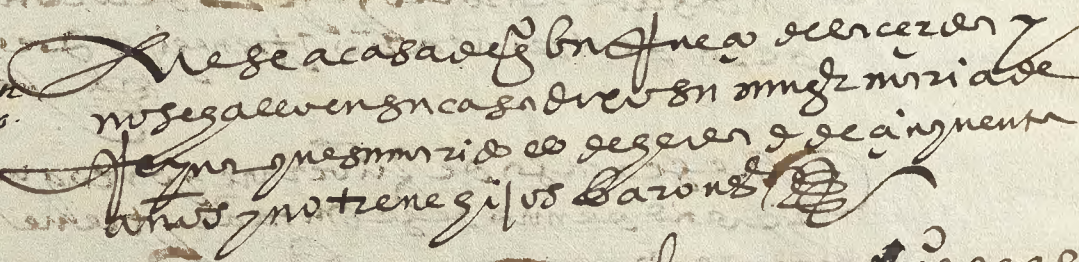 fuese a casa de xpoval bn franco de la cerda y
no se hallo en su casa dixo su muger maria de
Reyna que su marido es de hedad de cinquenta
años y no tiene hijos barones